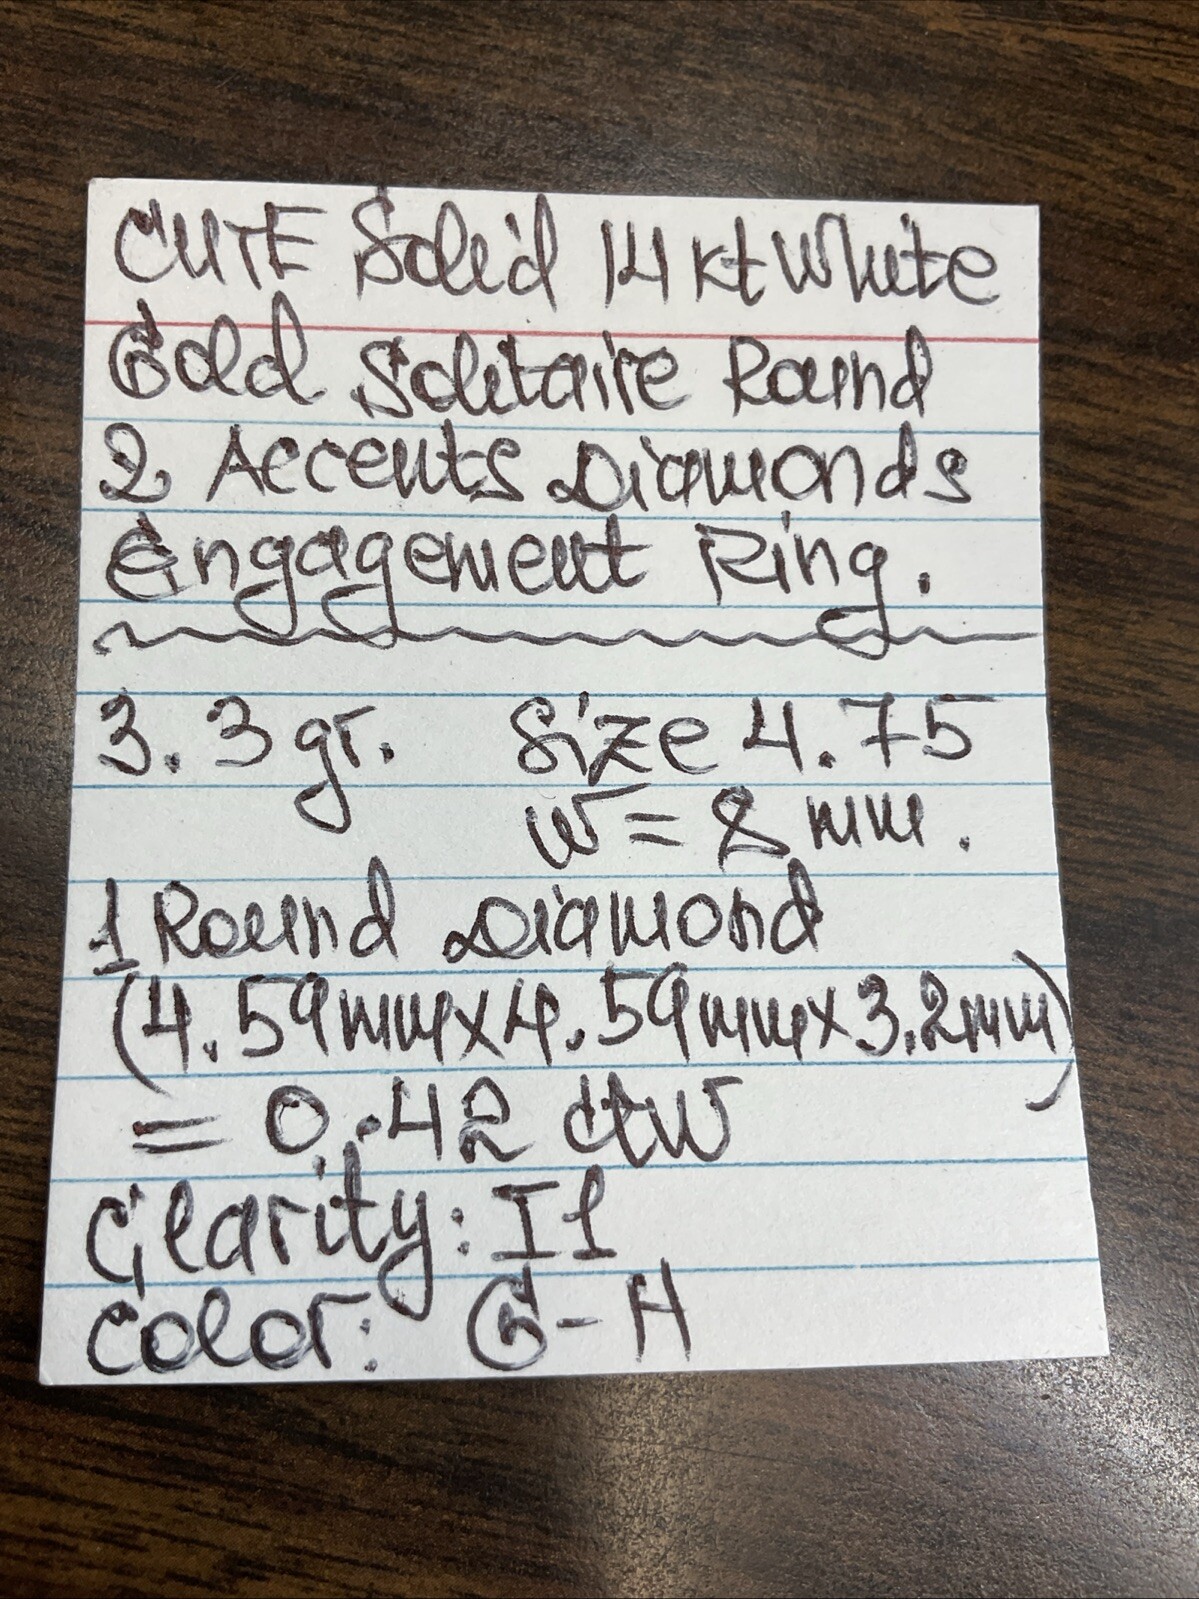 CUTE Solid 14 kt White
Gold Solitaire Round
2 Accents Diamonds
Engagement Ring.
3.3 gr. Size 4.75
W = 8 mm.
1 Round Diamond
(4.59mm x 4.59mm x 3.2mm)
= 0.42 ctw
Clarity: I1
Color: G-H